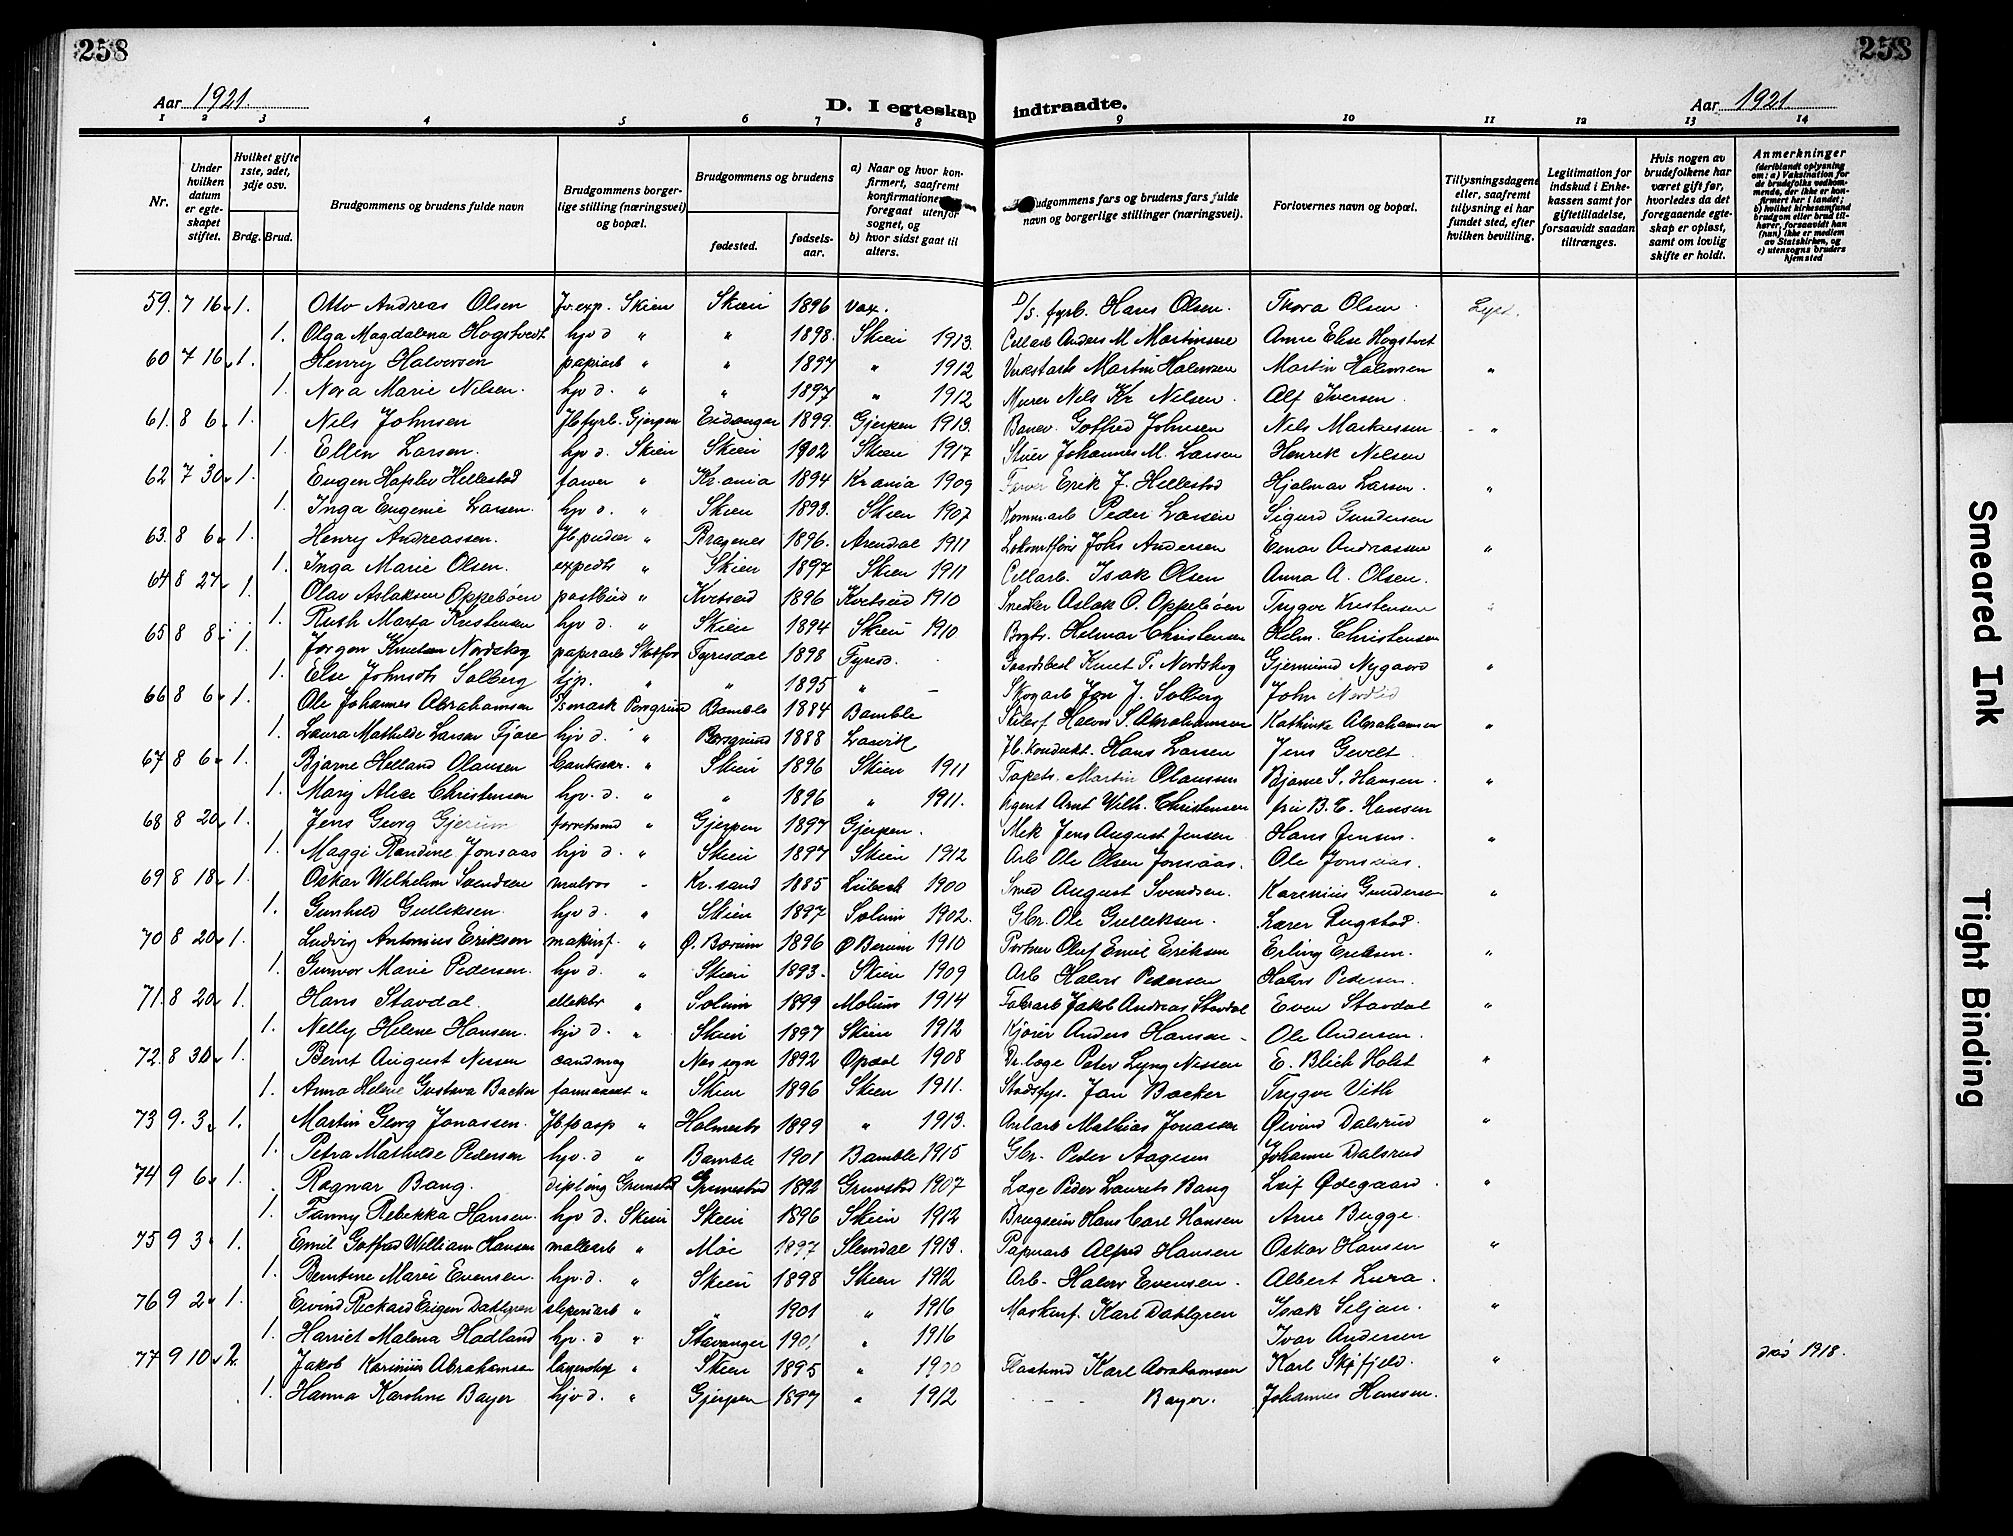 258
258
Aar 1921.
D. I egteskap indtraadte.
Aar 1921
1 2 3 4 5 6 7 8 9 10 11 12 13 14
Nr.
Under hvilken datum er egteskapet stiftet.
Hvilket gifte 1ste, 2det, 3dje osv.
Brdg. Brud.
Brudgommens og brudens fulde navn
Brudgommens borgerlige stilling (næringsvei) og bopæl.
Brudgommens og brudens
fødested.
fødselsaar.
a) Naar og hvor konfirmert, saafremt konfirmationen foregaat utenfor sognet, og
b) hvor sidst gaat til alters.
Brudgommens fars og brudens fars fulde navn og borgerlige stillinger (næringsvei).
Forlovernes navn og bopæl.
Tillysningsdagene eller, saafremt tillysning ei har fundet sted, efter hvilken bevilling.
Legitimation for indskud i Enkekassen samt for giftetilladelse, forsaavidt saadan tiltrænges.
Hvis nogen av brudefolkene har været gift før, hvorledes da det foregaaende egteskap er opløst, samt om lovlig skifte er holdt.
Anmerkninger
(deriblandt oplysning om: a) Vaksination for de brudefolks vedkommende, der ikke er konfirmert her i landet; b) hvilket kirkesamfund brudgom eller brud tilhører, forsaavidt han (hun) ikke er medlem av Statskirken, og c) utensogns bruders hjemsted
59. 7 16 1. Otto Andreas Olsen Skien Skien 1896 vax. D/S. fyrb. Hans Olsen. Thora Olsen. Lyst.
1. Olga Magdalena Hogstvedt hjv d " " 1898. Skien 1913. Cellarb Anders M Martinsen Anne Else Hogstvet
60 7 16 1. Henry Halvorsen papirarb " " 1897 " 1912 Verkstarb Martin Halvorsen Martin Halvorsen "
1. Nora Marie Nilsen. hjv d. " " 1897 " 1912 Murer Nils Kr Nilsen. Alf Iversen.
61. 8 6 1. Nils Johnsen Jbfyrb. Gjerpen Eidanger 1899. Gjerpen 1913. Banev. Gotfred Johnsen Nils Markussen "
1. Ellen Larsen. hjv d. Skien Skien 1902 Skien 1917 Johannes M. Larsen Henrik Nilsen
62 7 30 1. Eugen Hellestad farver " Kr.ania 1894 Kr ania 1909 Farver Erik J. Hellestad Hjalmar Larsen. "
1. Inga Eugenie Larsen. hjv d. " Skien 1893. Skien 1907 Komm.arb Peder Larsen Sigurd Gundersen
63. 8 6 1. Henry Andreassen. " Bragenes 1896. Arendal 1911 Johs Andersen Einar Andreassen "
1. Inga Marie Olsen. " Skien 1897 Skien 1911 Cellarb. Isak Olsen Anna A. Olsen.
64 8 27 1. Olav Aslaksen Oppebøen postbud " Kvitseid 1896 Kvitseid 1910 Snedker Aslak O. Oppebøen Trygve Kristensen "
1. Ruth Marta Kristensen hjv d. " Skien 1894 Skien 1910 Helmar Christensen Helm. Christensen
65 8 8 1. Jørgen Knutsen Nordskog papirarb Fyrisdal 1898 Fyrisd. Gaardsbest Knut T. Nordskog Gjermund Nygaard "
1. Else Johnsdt. Solberg tjp. " " 1895 " Skogarb Jon J. Solberg John
66 8 6 1. Ole Johannes Abrahamsen Porsgrund Bamble 1884 Bamble Halvor S. Abrahamsen Kathinka Abrahamsen "
1. Laura Mathilde Larsen Tjøre hjv d. " Porsgrund 1888 Laurvik Jb. kondukt. Hans Larsen Jens Gevelt
67 8 6 1. Bjarne Helland Olausen bankskr. " Skien 1896 Skien 1911 Tapets. Martin Olaussen Bjarne S. Hansen. "
1. Mary Alice Christensen hjv. d. " " 1896 " 1911. Agent Arnt Wilh. Christensen fru B. E. Hansen
68 8 20 1. Jens Georg Gjerum " Gjerpen 1897 Gjerpen. Mek Jens August Jensen Hans Jensen. "
1. Maggi Randine Jonsaas hjv d. " Skien 1897 Skien 1912 Arb Ole Olsen Jonsaas. Ole Jonsaas.
69 8 18 1. Oskar Wilhelm Svendsen matros " Kr.sand 1885 Lübeck 1900 Smed August Svendsen. Karenius Gundersen "
1. Gunhild Gulliksen. hjv d. " Skien 1897 Solum 1902. Gbr. Ole Gulliksen. Lærer Rugstad.
70 8 20 1. Ludvig Antonius Eriksen makinf. " Ø. Bærum 1896 Ø Bærum 1910 Portner Oluf Emil Eriksen Erling Eriksen. "
1. Gunvor Marie Pedersen. hjv d. " Skien 1893. Skien 1909 Arb Halvor Pedersen Halvor Pedersen.
71. 8 20 1. Hans Stavdal. elektr " Solum 1899 Melum 1914 Fabrarb Jakob Andreas Stavdal Even Stavdal "
1. Nelly Helene Hansen. hjv d. " Skien 1897 Skien 1912 Kjører Anders Hansen Ole Andersen.
72. 8 30 1. Bernt August Nissen cand mag " Nes sogn 1892 Opdal 1908 Dr. læge Peter Lyng Nissen E. Blich Holst "
1. Anna Helene Gustava Backer farmaceut " Skien 1896 Skien 1911. Stadsfys. Jan Backer Trygve Vith
73 9. 3 1. Martin Georg Jonassen. Jbfb asp " Holmestr 1899 " 1913. Mathias Jonassen Øivind Dalsrud "
1. Petra Mathilde Pedersen hjv. d " Bamble 1901 Bamble 1915 Gbr. Peder Aagesen Johanne Dalsrud
74 9 6 1. Ragnar Bang. dipl.ing Grimstad Grimstad 1892 Grimstad 1907 Læge Peder Laurits Bang Leif Ødegaard. "
1. Fanny Rebekka Hansen. hjv d. Skien Skien 1896 Skien 1912 Hans Carl Hansen Arne Bugge.
75 9 3 1. Emil Gotfred William Hansen " Moe 1897 Slemdal 1913. Papirarb Alfred Hansen Oskar Hansen "
1. Berntine Marie Evensen. hjv. d. " Skien 1898 Skien 1912 Arb. Halvor Evensen. Albert Lura.
76 9 2 1. Eivind Rickard Eugen Dahlgren sliperiarb " " 1901 " 1916 Maskinf. Karl Dahlgren Isak Siljan. "
1. Harriet Malena Hadland hjv. d " Stavanger 1901 " 1916 Ivar Andersen
77 9 10 2. Jakob Karinius Abrahamsen " Skien 1895 " 1900 Karl Abrahamsen Karl Skifjeld. " død 1918.
1. Hanna Karoline Bayer hjv d. " Gjerpen 1897 " 1912 - - Bayer. Johannes Hansen.
Smeared Ink
Tight Binding